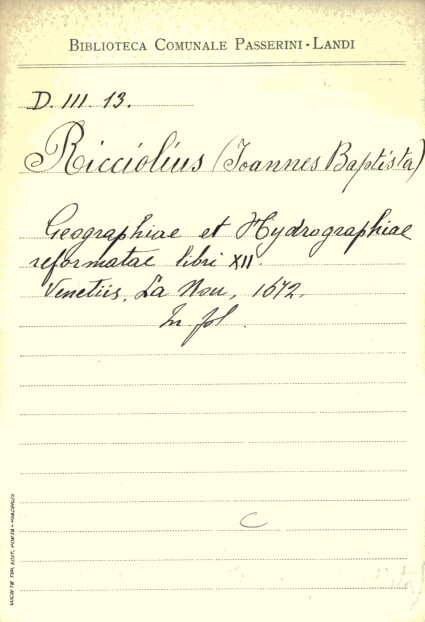 BIBLIOTECA COMUNALE PASSERINI-LANDI
D. III. 13.
Ricciolius (Joannes Baptista)
Geographiae et Hydrographiae
reformatae libri XII.
Venetiis, La Nou, 1672.
In fol.
C